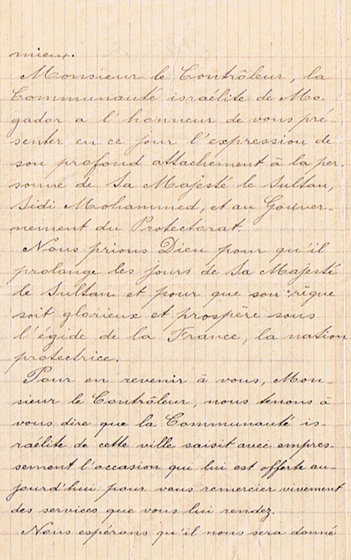 mieux.
Monsieur le Contrôleur, la
Communauté israélite de Mo-
gador a l'honneur de vous pré-
senter en ce jour l'expression de
son profond attachement à la per-
sonne de Sa Majesté le Sultan,
Sidi Mohammed, et au Gouver-
nement du Protectorat.
Nous prions Dieu pour qu'il
prolonge les jours de Sa Majesté
le Sultan et pour que son règne
soit glorieux et prospère sous
l'égide de la France, la nation
protectrice.
Pour en revenir à vous, Mon-
sieur le Contrôleur, nous tenons à
vous dire que la Communauté is-
raélite de cette ville saisit avec empres-
sement l'occasion qui lui est offerte au-
jourd'hui pour vous remercier vivement
des services que vous lui rendez.
Nous espérons qu'il nous sera donné